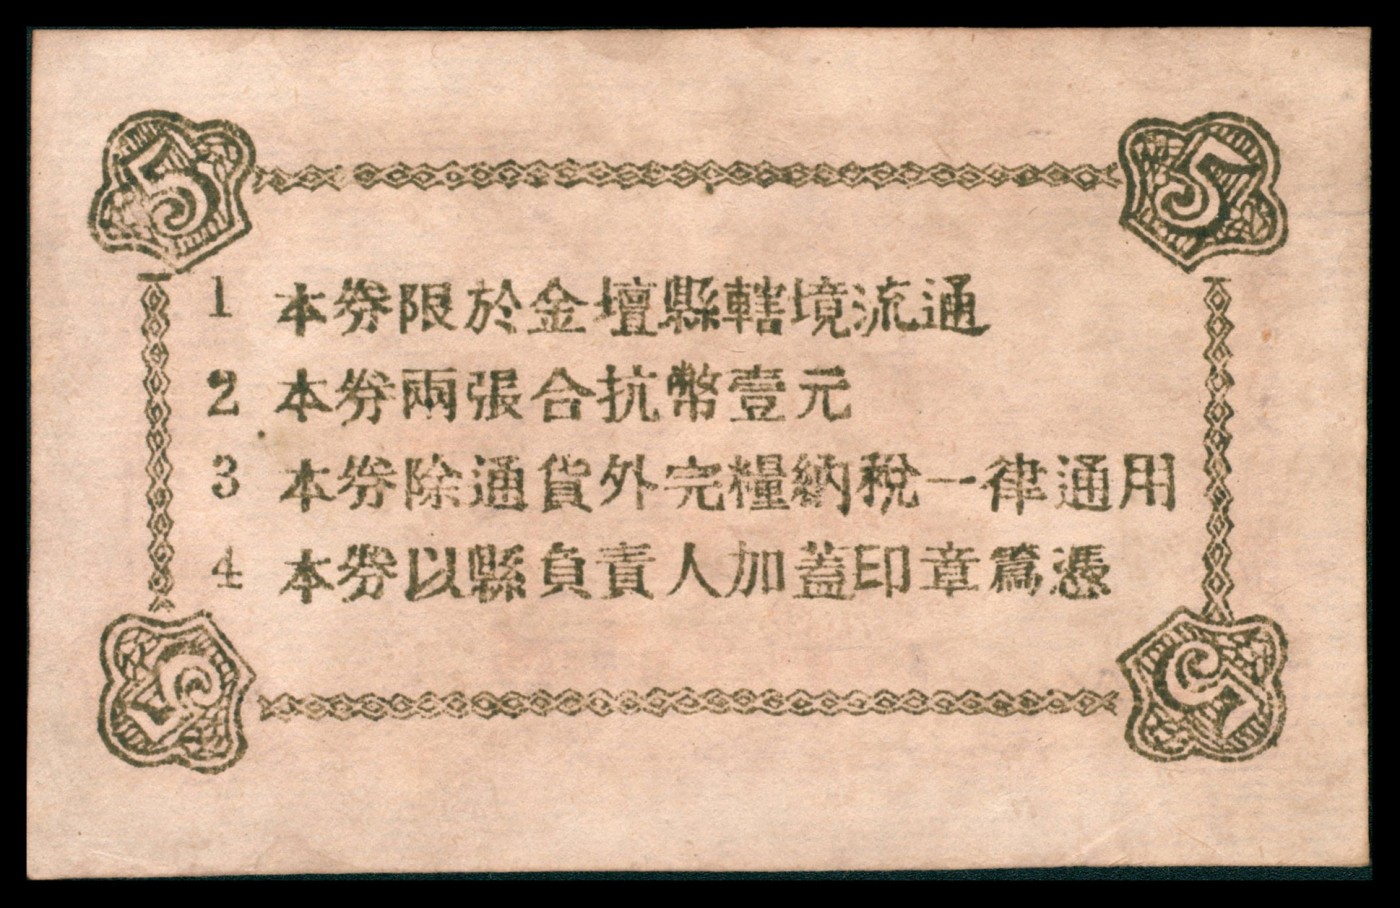 5 5
1 本券限於金壇縣轄境流通
2 本券兩張合抗幣壹元
3 本券除通貨外完糧納稅一律通用
4 本券以縣負責人加蓋印章爲憑
5 5